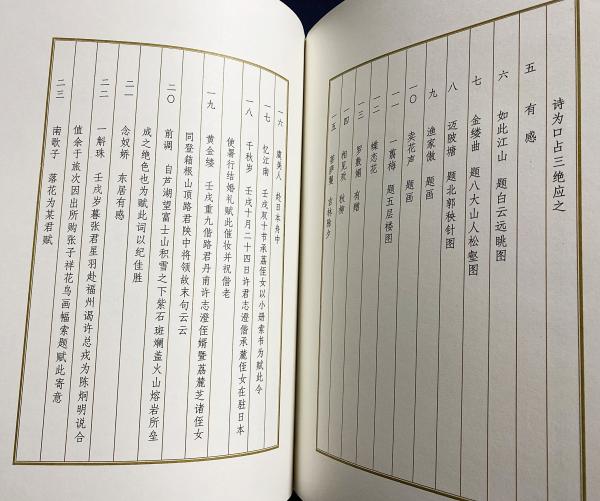 诗为口占三绝应之
五 有感
六 如此江山 题白云远眺图
七 金缕曲 题八大山人松壑图
八 迈陂塘 题北郭秧针图
九 渔家傲 题画
一〇 卖花声 题画
一一 一翦梅 题五层楼图
一二 蝶恋花
一三 罗敷媚 有赠
一四 相见欢 秋柳
一五 菩萨鬘 吉林除夕
一六 虞美人 赴日本舟中
一七 忆江南 壬戌双十书承荔侄女以小册索书为赋此令
一八 千秋岁 壬戌十月二十四日许君志澄偕承麓侄女在驻日本
使署行结婚礼赋此催妆并祝偕老
一九 黄金缕 壬戌重九偕路君丹甫许志澄侄婿暨荔麓芝诸侄女
同登箱根山顶路君陕中将领故末句云云
二〇 前调 自芦湖望富士山积雪之下紫石斑斓盖火山熔岩所垒
成之绝色也为赋此词以纪佳胜
二一 念奴娇 东居有感
二二 一斛珠 壬戌岁暮张君星羽赴福州谒许总戎为陈炯明说合
值余于旅次因出所购张子祥花鸟画幅索题赋此寄意
二三 南歌子 落花为某君赋